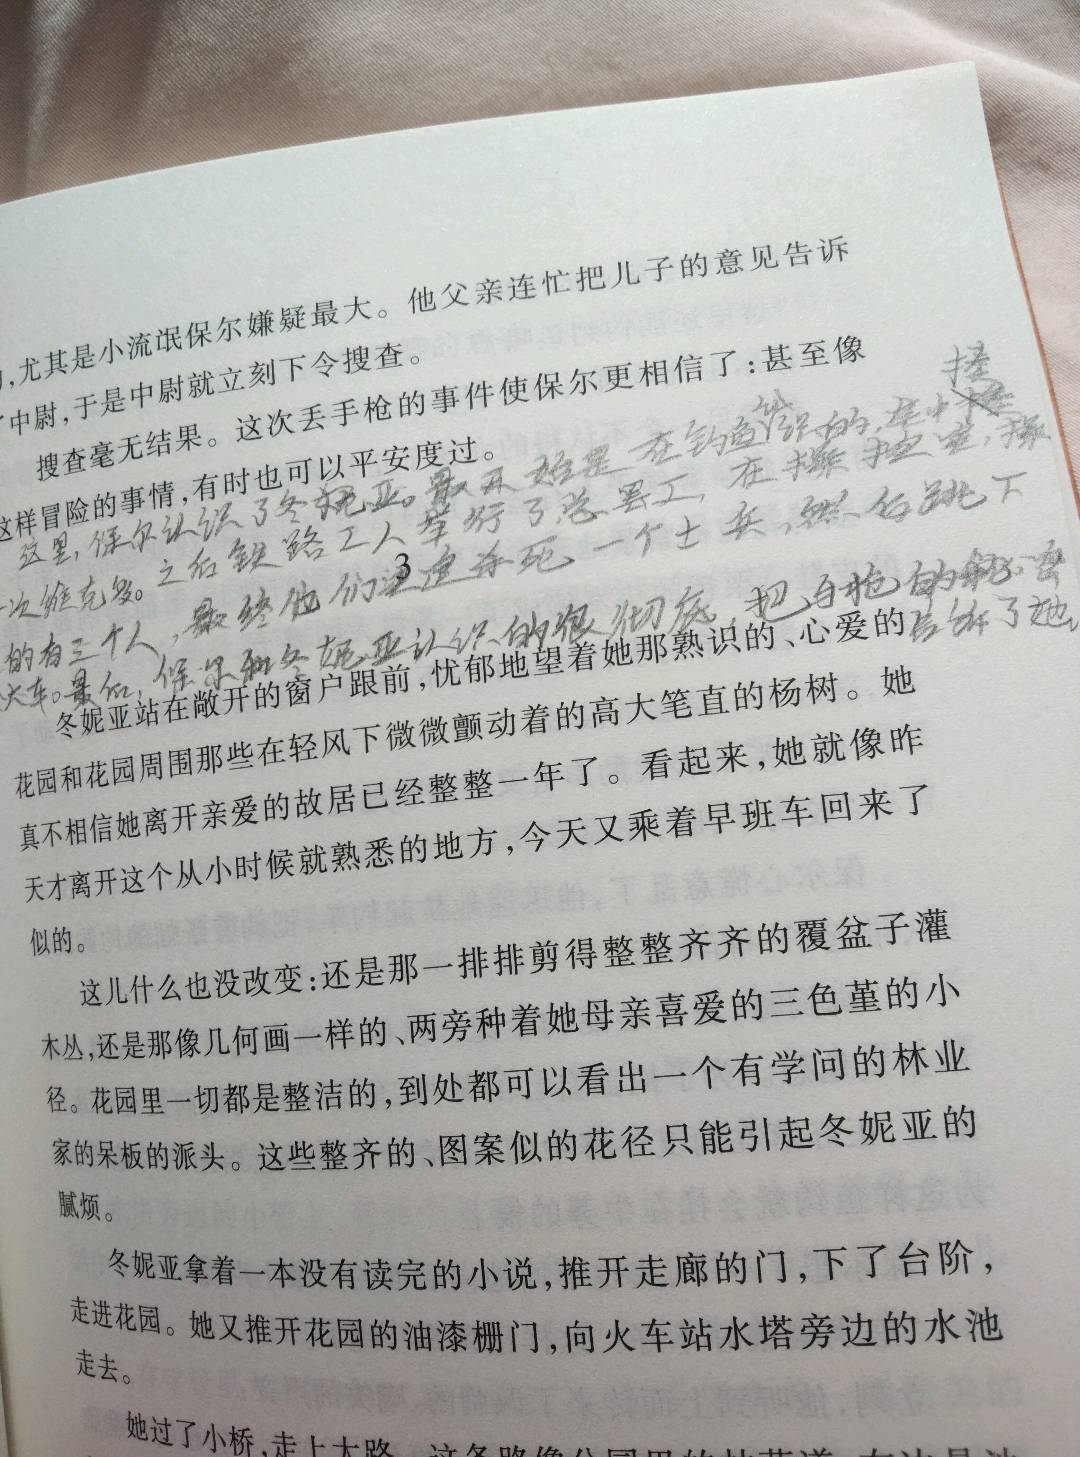 ,尤其是小流氓保尔嫌疑最大。他父亲连忙把儿子的意见告诉
了中尉,于是中尉就立刻下令搜查。
搜查毫无结果。这次丢手枪的事件使保尔更相信了:甚至像
这样冒险的事情,有时也可以平安度过。
这里,保尔认识了冬妮亚。最开始是在钓鱼认识的,
一次维克多。之后铁路工人举行了总罢工,在
的有三个人,最终他们迅速杀死一个士兵,然后跳下
火车。最后,保尔和冬妮亚认识的很彻底,把自抢的秘密告诉了她
3
冬妮亚站在敞开的窗户跟前,忧郁地望着她那熟识的、心爱的
花园和花园周围那些在轻风下微微颤动着的高大笔直的杨树。她
真不相信她离开亲爱的故居已经整整一年了。看起来,她就像昨
天才离开这个从小时候就熟悉的地方,今天又乘着早班车回来了
似的。
这儿什么也没改变:还是那一排排剪得整整齐齐的覆盆子灌
木丛,还是那像几何画一样的、两旁种着她母亲喜爱的三色堇的小
径。花园里一切都是整洁的,到处都可以看出一个有学问的林业
家的呆板的派头。这些整齐的、图案似的花径只能引起冬妮亚的
腻烦。
冬妮亚拿着一本没有读完的小说,推开走廊的门,下了台阶,
走进花园。她又推开花园的油漆栅门,向火车站水塔旁边的水池
走去。
她过了小桥,走上大路。这条路像公园里的林荫道,右边是池